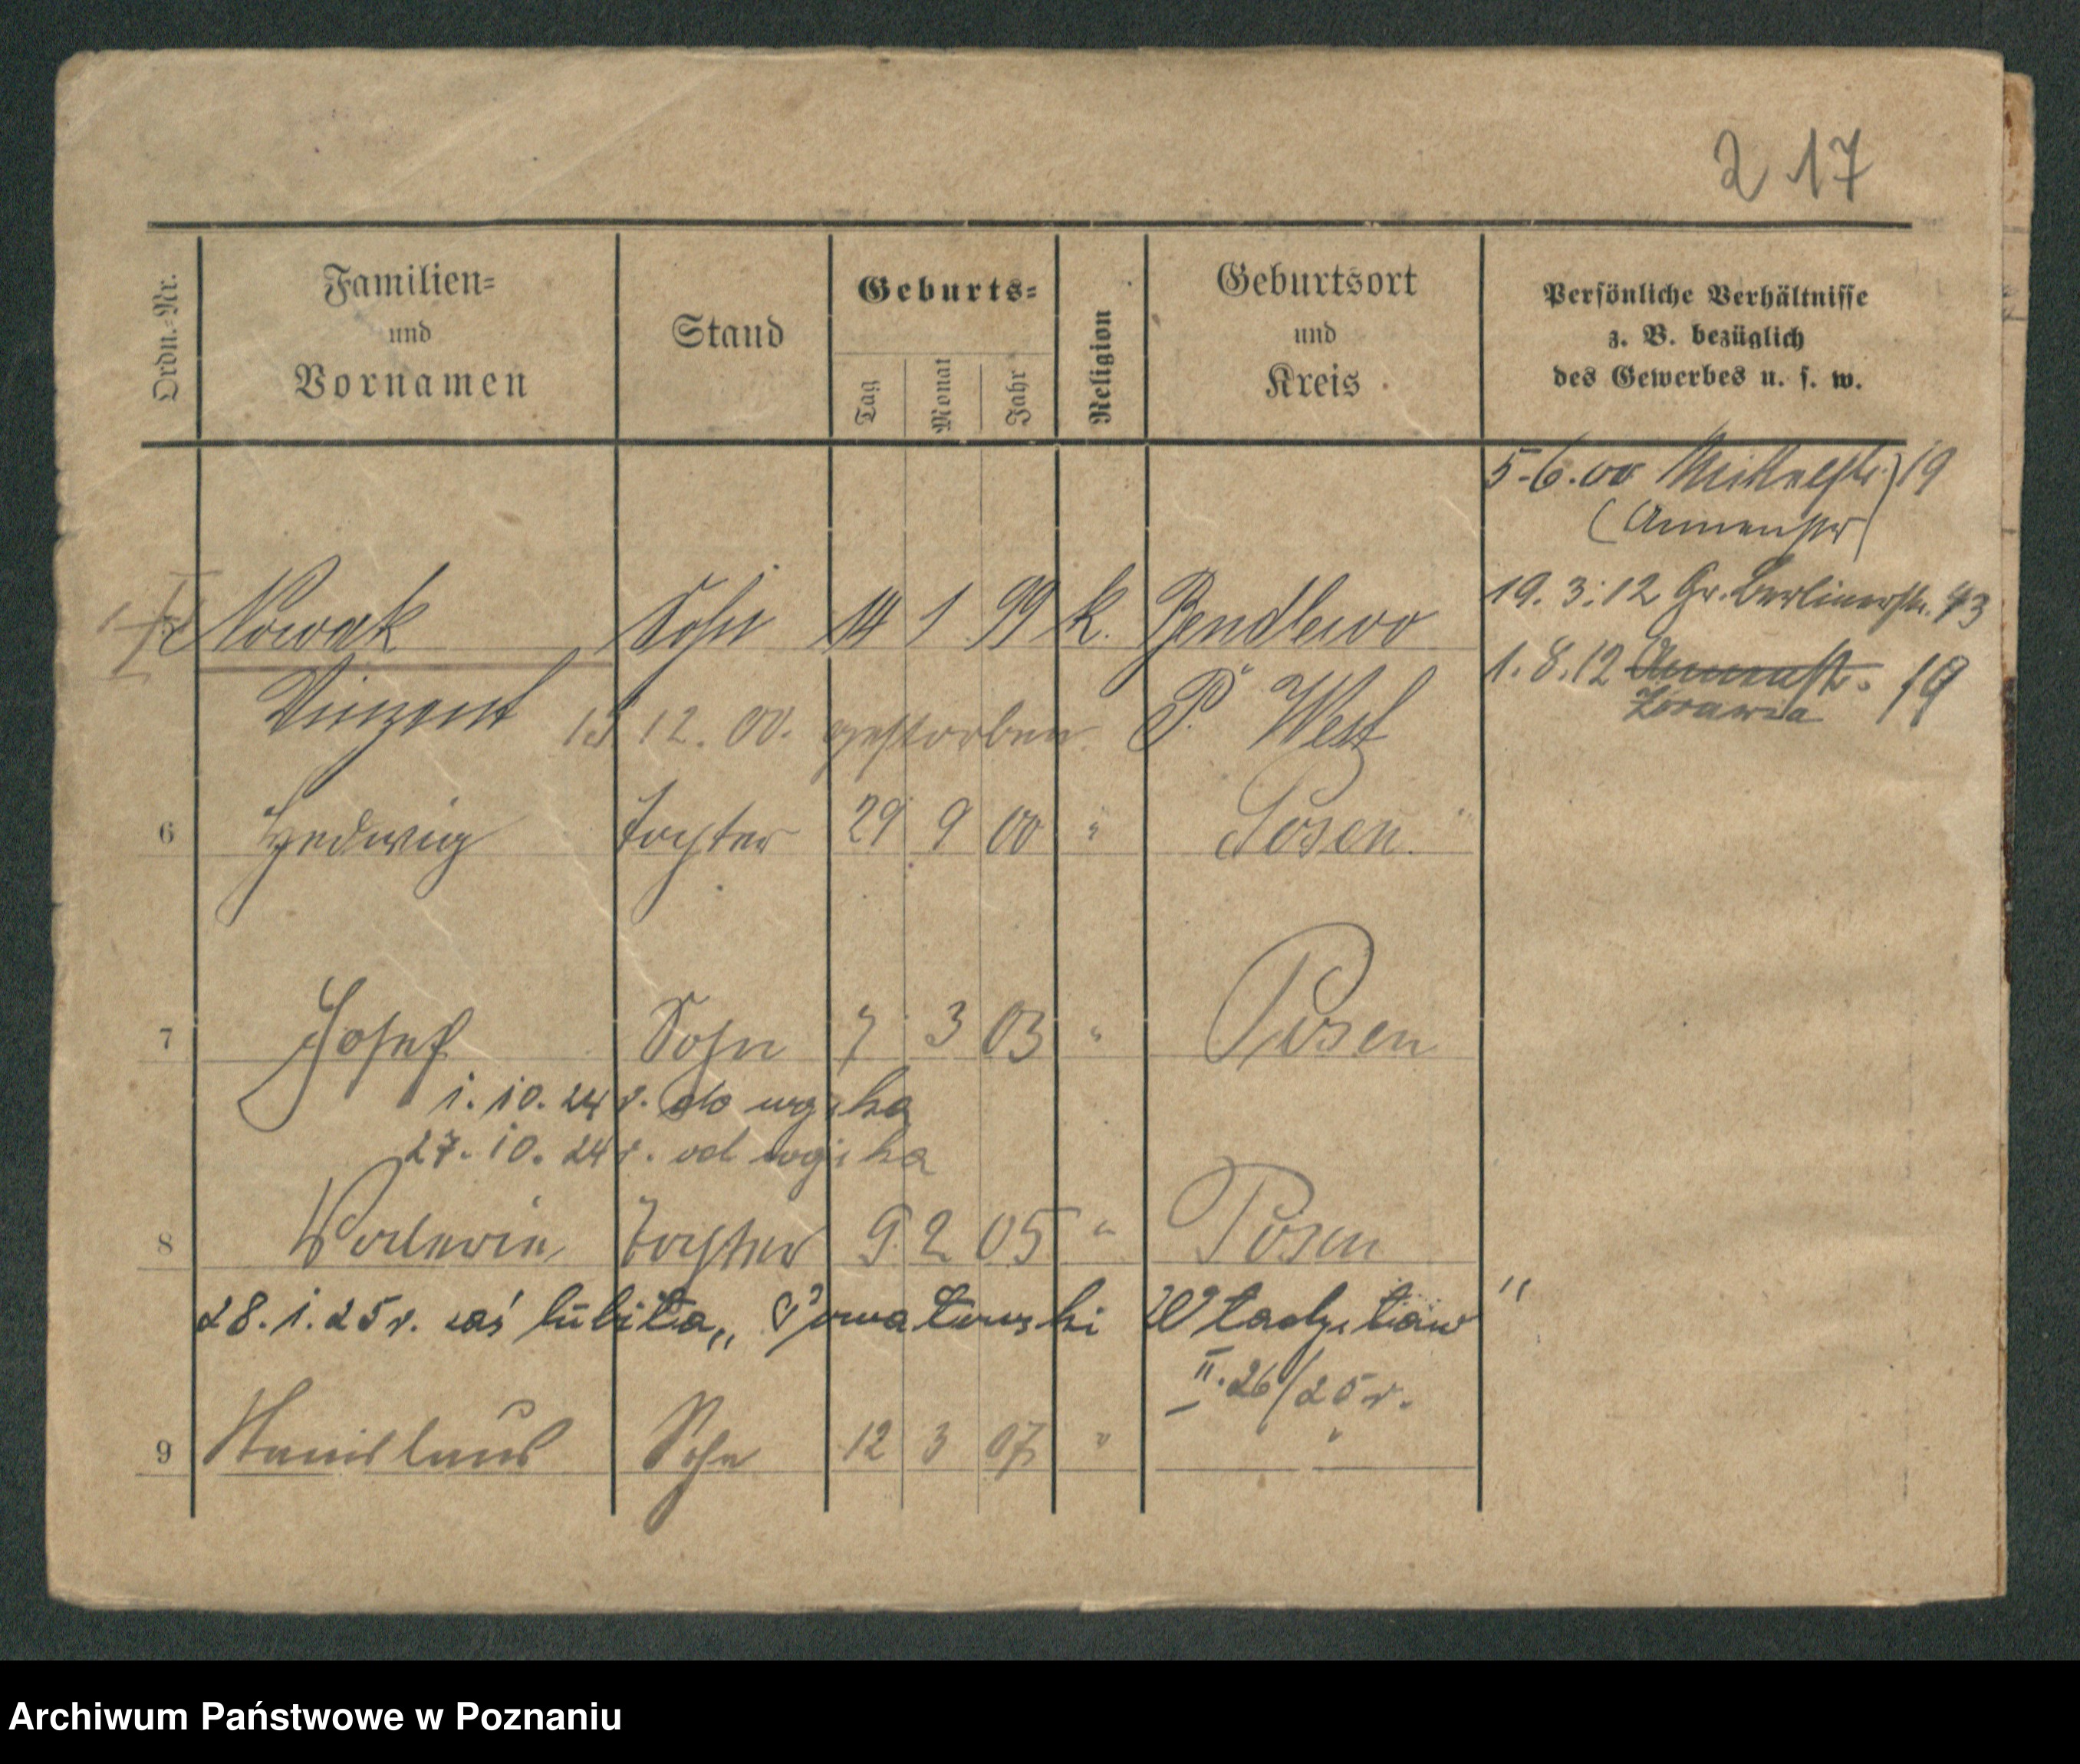 2 17
Ordn.-Nr.
Familien-
und
Vornamen
Stand
Geburts-
Tag
Monat
Jahr
Religion
Geburtsort
und
Kreis
Persönliche Verhältnisse
z. B. bezüglich
des Gewerbes u. s. w.
5.6.00 19
(Annenstr)
19.3.12 Gr. Berlinerstr. 73
1.8.12 Annenstr. 19
Zorawia
Nowak Sohn 14 1 99 k. Bendlewo
Vinzent 12.00. gestorben P. West
6 Hedwig Tochter 29 9 00 " Posen
7 Josef Sohn 7 3 03 " Posen
1.10.24 r. do wojska
27.10.24 r. od wojska
8 Tochter 9 2 05 " Posen
28.1.25 r. zaślubiła „Władysław"
II.26/25 r.
9 Stanislaus Sohn 12 3 07 " "
Archiwum Państwowe w Poznaniu